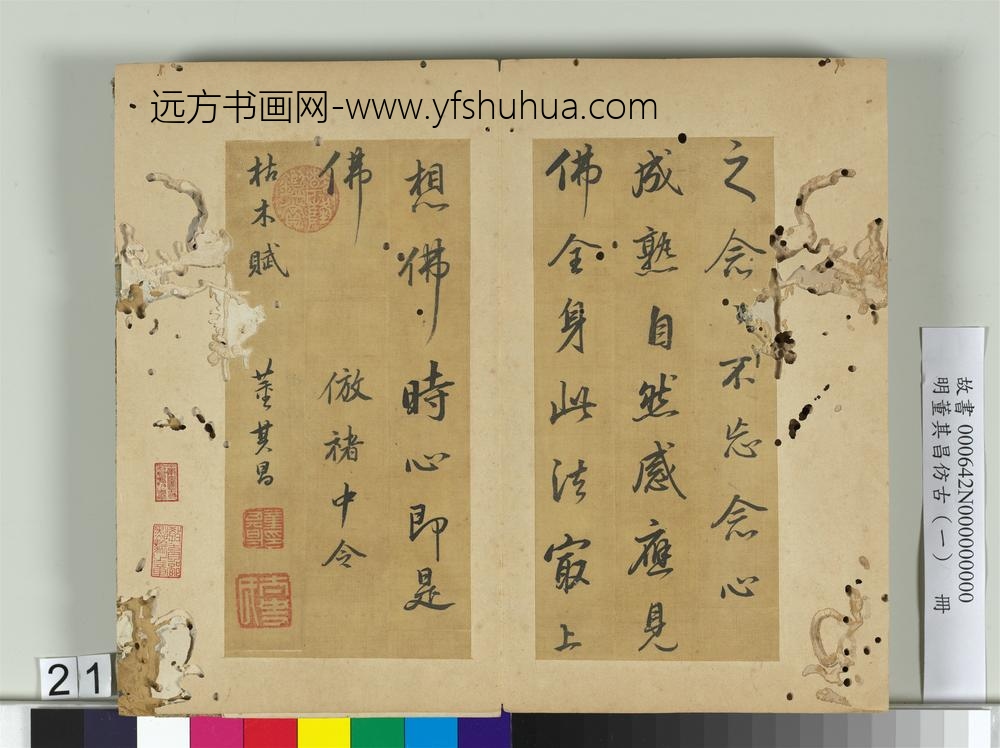 远方书画网-www.yfshuhua.com
之念念不忘念心
成熟自然感應見
佛全身此法寂上
想佛時心即是
佛　倣褚中令
枯木賦　董其昌
故書 000642N000000000
明董其昌仿古（一） 冊
21